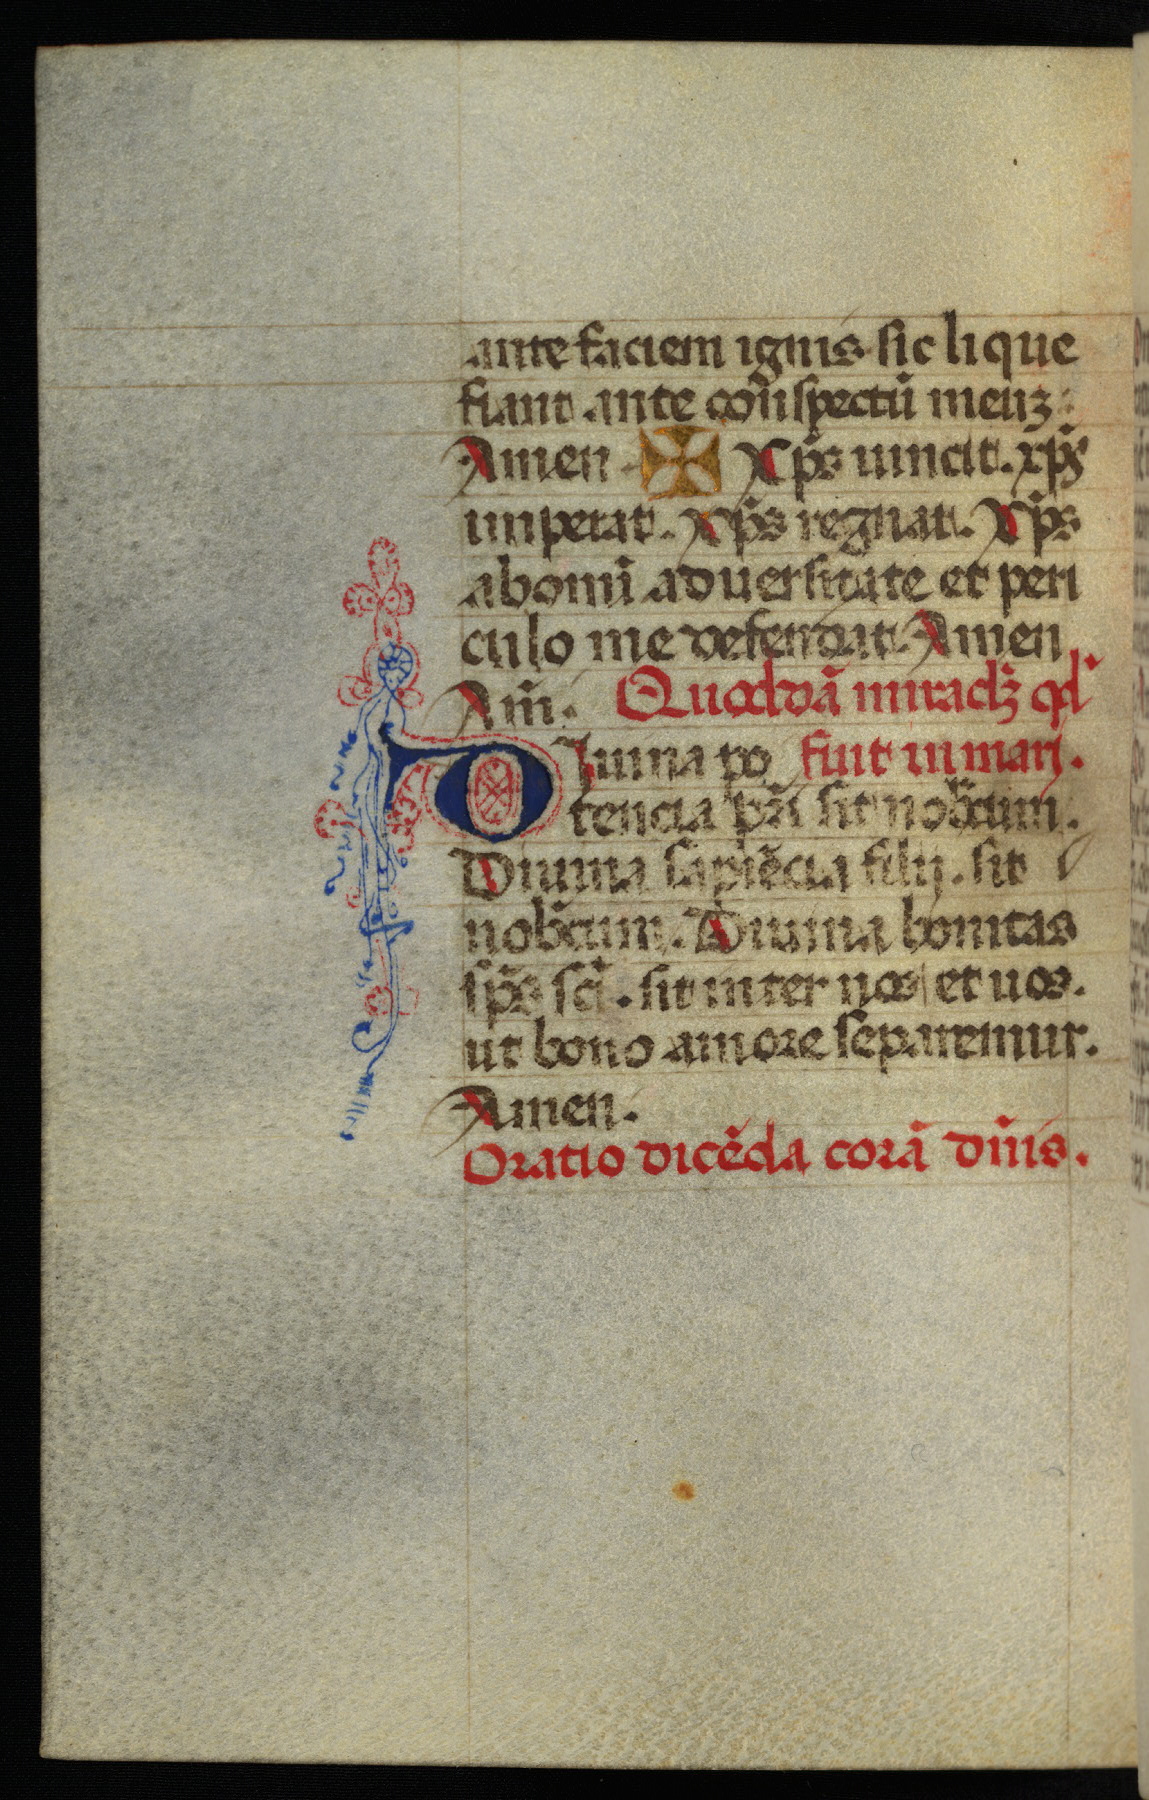 ante faciem ignis sic lique
fiant ante con̄spectū meuꝫ
Amen ✠ Xp̄s uincit. xp̄s
imperat. Xp̄s regnat. Xp̄s
ab omī aduersitate et peri
culo me defendat. Amen
Am̄. Quoddā miraclꝫ qd̄
Diuina po fuit in mari.
tencia pr̄i sit nob̄cum.
Diuina sapiēcia filij. sit
nob̄cum. Diuina bonitas
sp̄s sc̄i. sit inter nos et uos.
ut bono amore separemur.
Amen.
Oratio dicēda corā dn̄is.